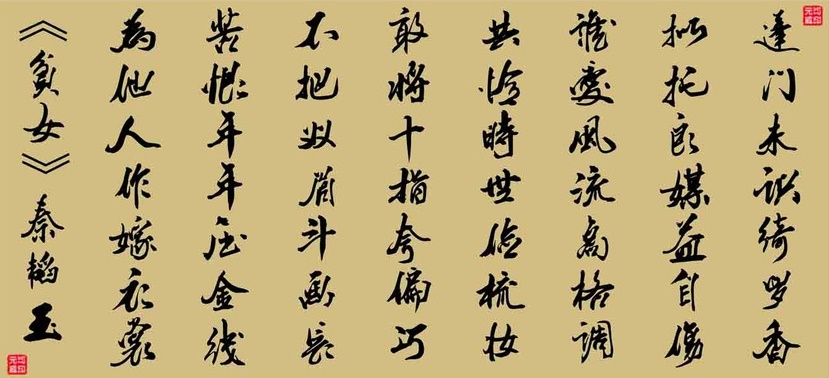 蓬门未识绮罗香
拟托良媒益自伤
谁愛风流高格调
共怜時世俭梳妆
敢将十指夸偏巧
不把双眉斗画长
苦恨年年压金线
為他人作嫁衣裳
《贫女》秦韬玉